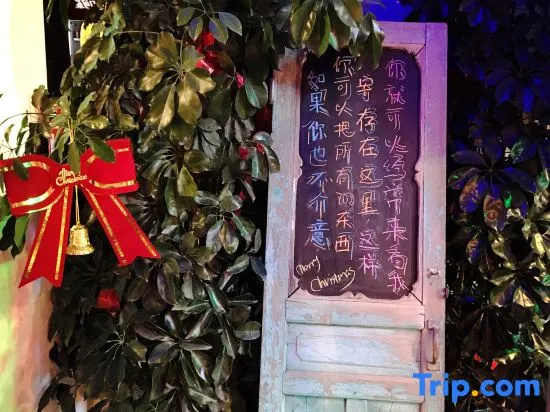 Merry
Christmas
如果你也不介意
你可以把所有的东西
寄存在这里 这样
你就可以经常来看我
Merry
Christmas
Trip.com